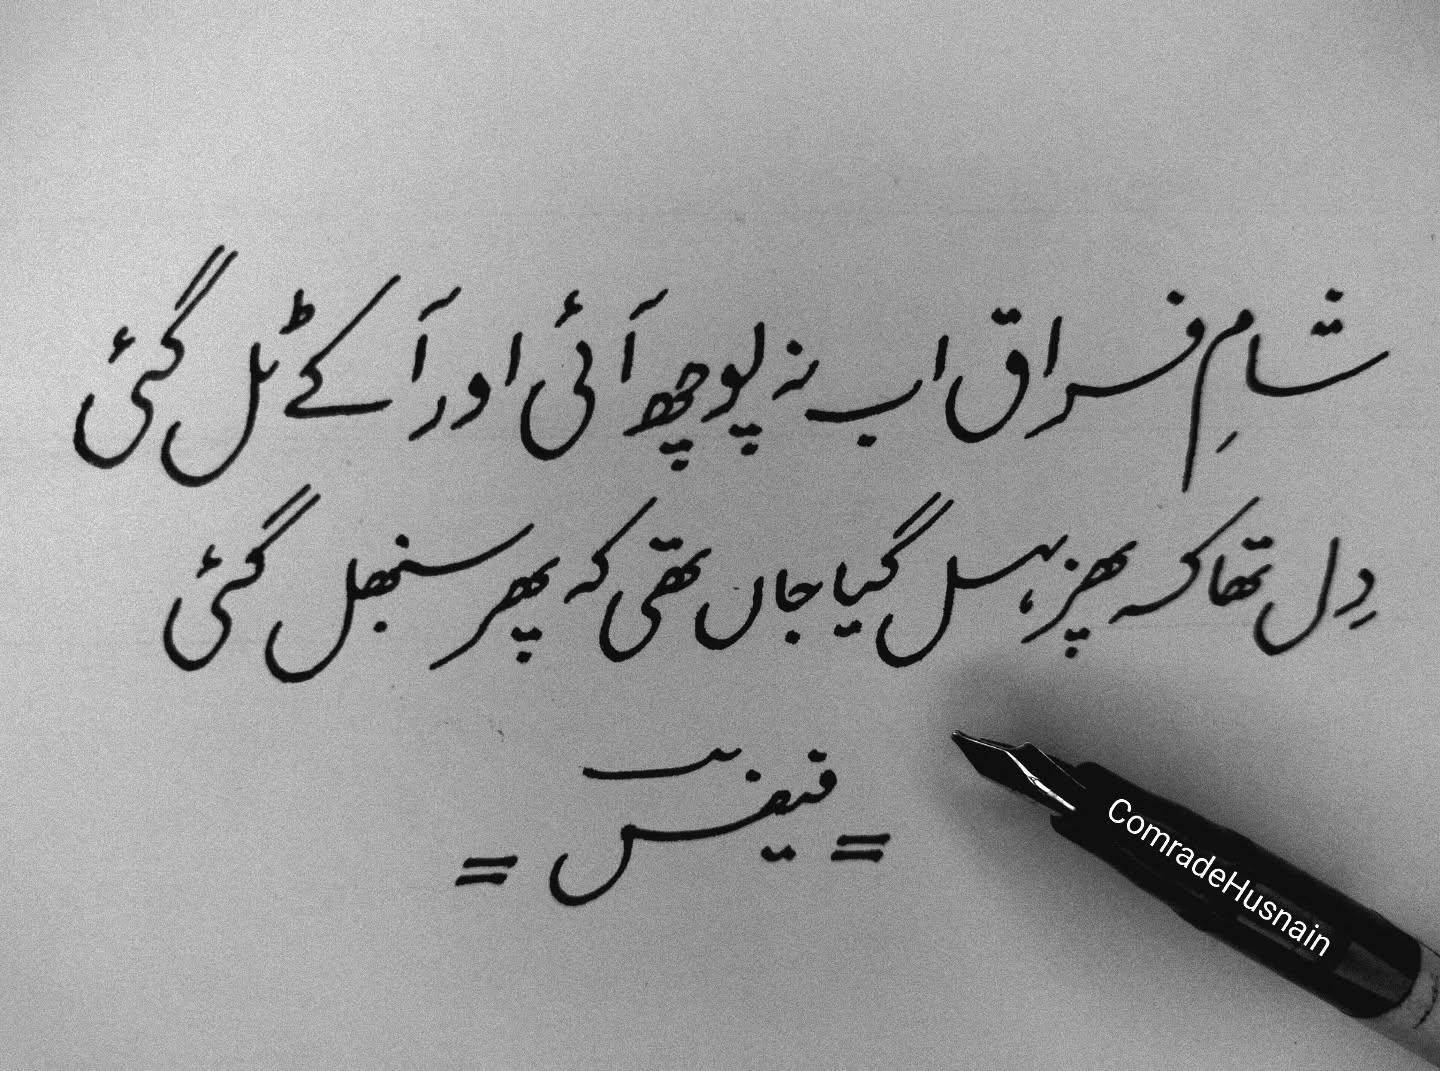 شامِ فراق اب نہ پوچھ آئی اور آ کے ٹل گئی
دِل تھا کہ پھر بہل گیا جاں تھی کہ پھر سنبھل گئی
= فیض =
ComradeHusnain